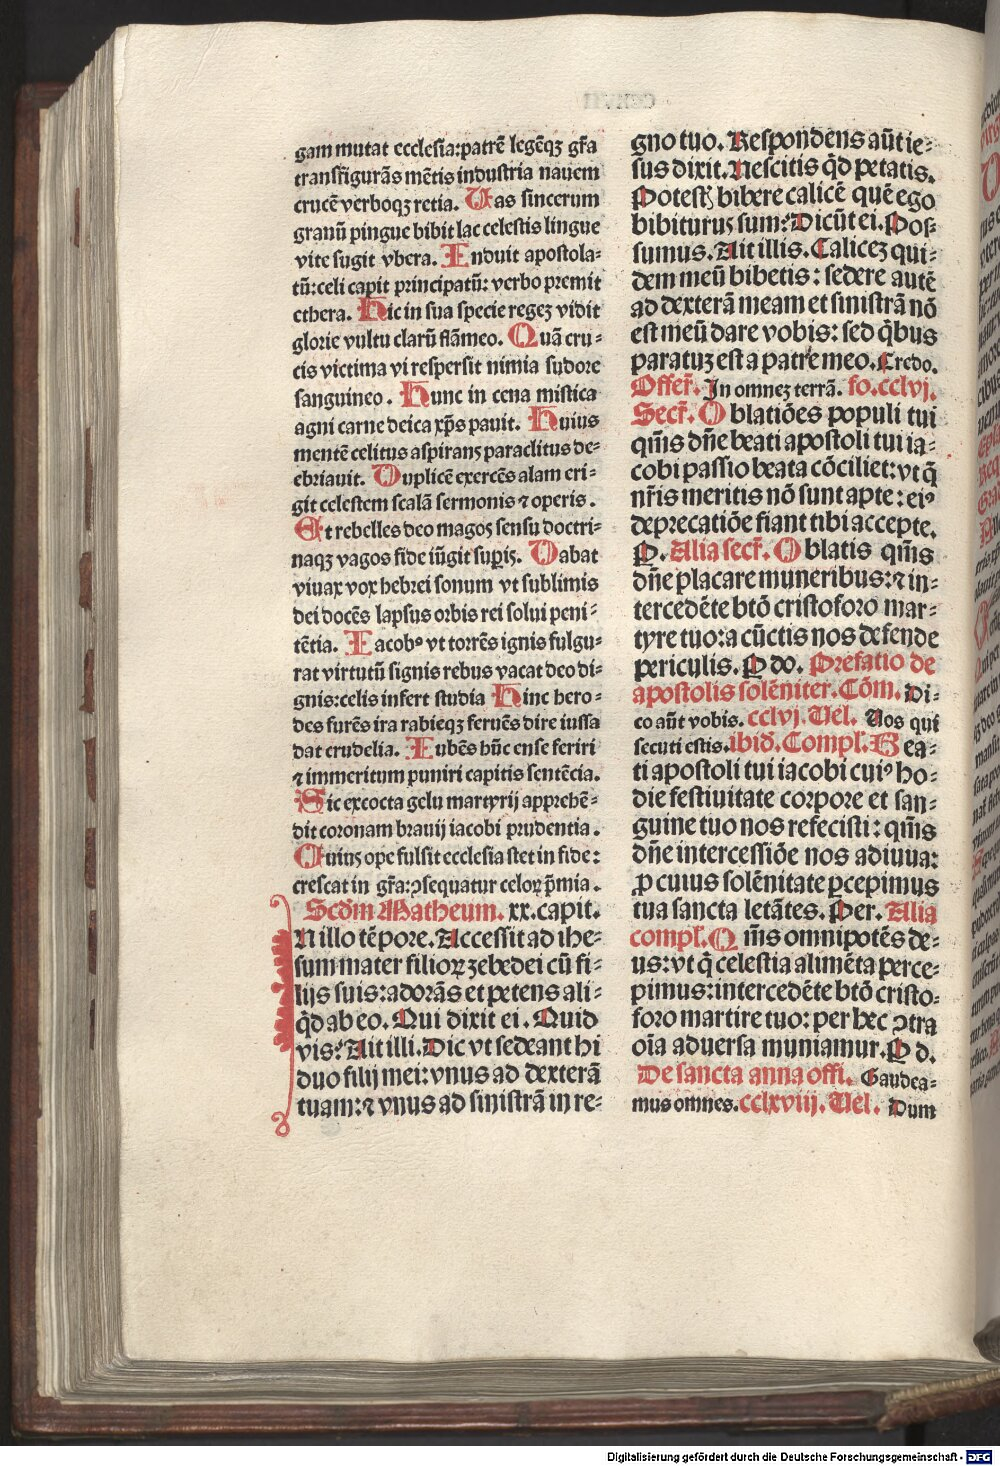 gam mutat ecclesia:patrē legēqꝫ gr̄a
transfigurās mētis industria nauem
crucē verboqꝫ retia. Uas sincerum
granū pingue bibit lac celestis lingue
vite sugit vbera. Induit apostola⸗
tū:celi capit principatū: verbo premit
ethera. Hic in sua specie regeꝫ vidit
glorie vultu clarū flāmeo. Quā cru⸗
cis victima vi respersit nimia sudore
sanguineo. Hunc in cena mistica
agni carne deica xp̄s pauit. Huius
mentē celitus aspirans paraclitus de⸗
ebriauit. Duplicē exercēs alam eri⸗
git celestem scalā sermonis ⁊ operis.
Et rebelles deo magos sensu doctri⸗
naqꝫ vagos fide iūgit suꝑis. Dabat
viuax vox hebrei sonum vt sublimis
dei docēs lapsus orbis rei solui peni⸗
tētia. Iacobꝰ vt torrēs ignis fulgu⸗
rat virtutū signis rebus vacat deo di⸗
gnis:celis infert studia Hinc hero⸗
des furēs ira rabieqꝫ feruēs dire iussa
dat crudelia. Iubēs hūc ense feriri
⁊ immeritum puniri capitis sentēcia.
Sic excocta gelu martyrij apprehē⸗
dit coronam brauij iacobi prudentia.
Cuius ope fulsit ecclesia stet in fide:
crescat in gr̄a:ꝯsequatur celoꝝ p̄mia.
Scd̄m Matheum. xx. capit.
IN illo tēpore. Accessit ad ihe⸗
sum mater filioꝝ ꝫebedei cū fi⸗
lijs suis: adorās et petens ali⸗
q̄d ab eo. Qui dixit ei. Quid
vis? Ait illi. Dic vt sedeant hi
duo filij mei: vnus ad dexterā
tuam: ⁊ vnus ad sinistrā in re⸗
gno tuo. Respondens aūt ie⸗
sus dixit. Nescitis q̄d petatis.
Potestꝭ bibere calicē quē ego
bibiturus sum? Dicūt ei. Pos⸗
sumus. Ait illis. Calicez qui⸗
dem meū bibetis: sedere autē
ad dexterā meam et sinistrā nō
est meū dare vobis: sed q̄bus
paratuꝫ est a patre meo. Credo.
Offer̄. In omneꝫ terrā. fo. cclvj.
Secr̄. Oblatiōes populi tui
qm̄s dn̄e beati apostoli tui ia⸗
cobi passio beata cōciliet: vt q̄
nr̄is meritis nō sunt apte: eiꝰ
deprecatiōe fiant tibi accepte.
P. Alia secr̄. Oblatis qm̄s
dn̄e placare muneribus: ⁊ in⸗
tercedēte btō cristoforo mar⸗
tyre tuo: a cūctis nos defende
periculis. P do. Prefatio de
apostolis solēniter. Cōm. Di⸗
co aūt vobis. cclvj. Uel. Uos qui
secuti estis. ibid. Compl. Bea⸗
ti apostoli tui iacobi cuiꝰ ho⸗
die festiuitate corpore et san⸗
guine tuo nos refecisti: qm̄s
dn̄e intercessiōe nos adiuua:
ꝓ cuius solēnitate ꝑcepimus
tua sancta letātes. Per. Alia
compl. Qm̄s omnipotēs de⸗
us: vt q̄ celestia alimēta perce⸗
pimus: intercedēte btō cristo⸗
foro martire tuo: per hec ↄtra
oīa aduersa muniamur. P d.
De sancta anna offi. Gaudea⸗
mus omnes. cclxviij. Uel. Dum
Digitalisierung gefördert durch die Deutsche Forschungsgemeinschaft - DFG